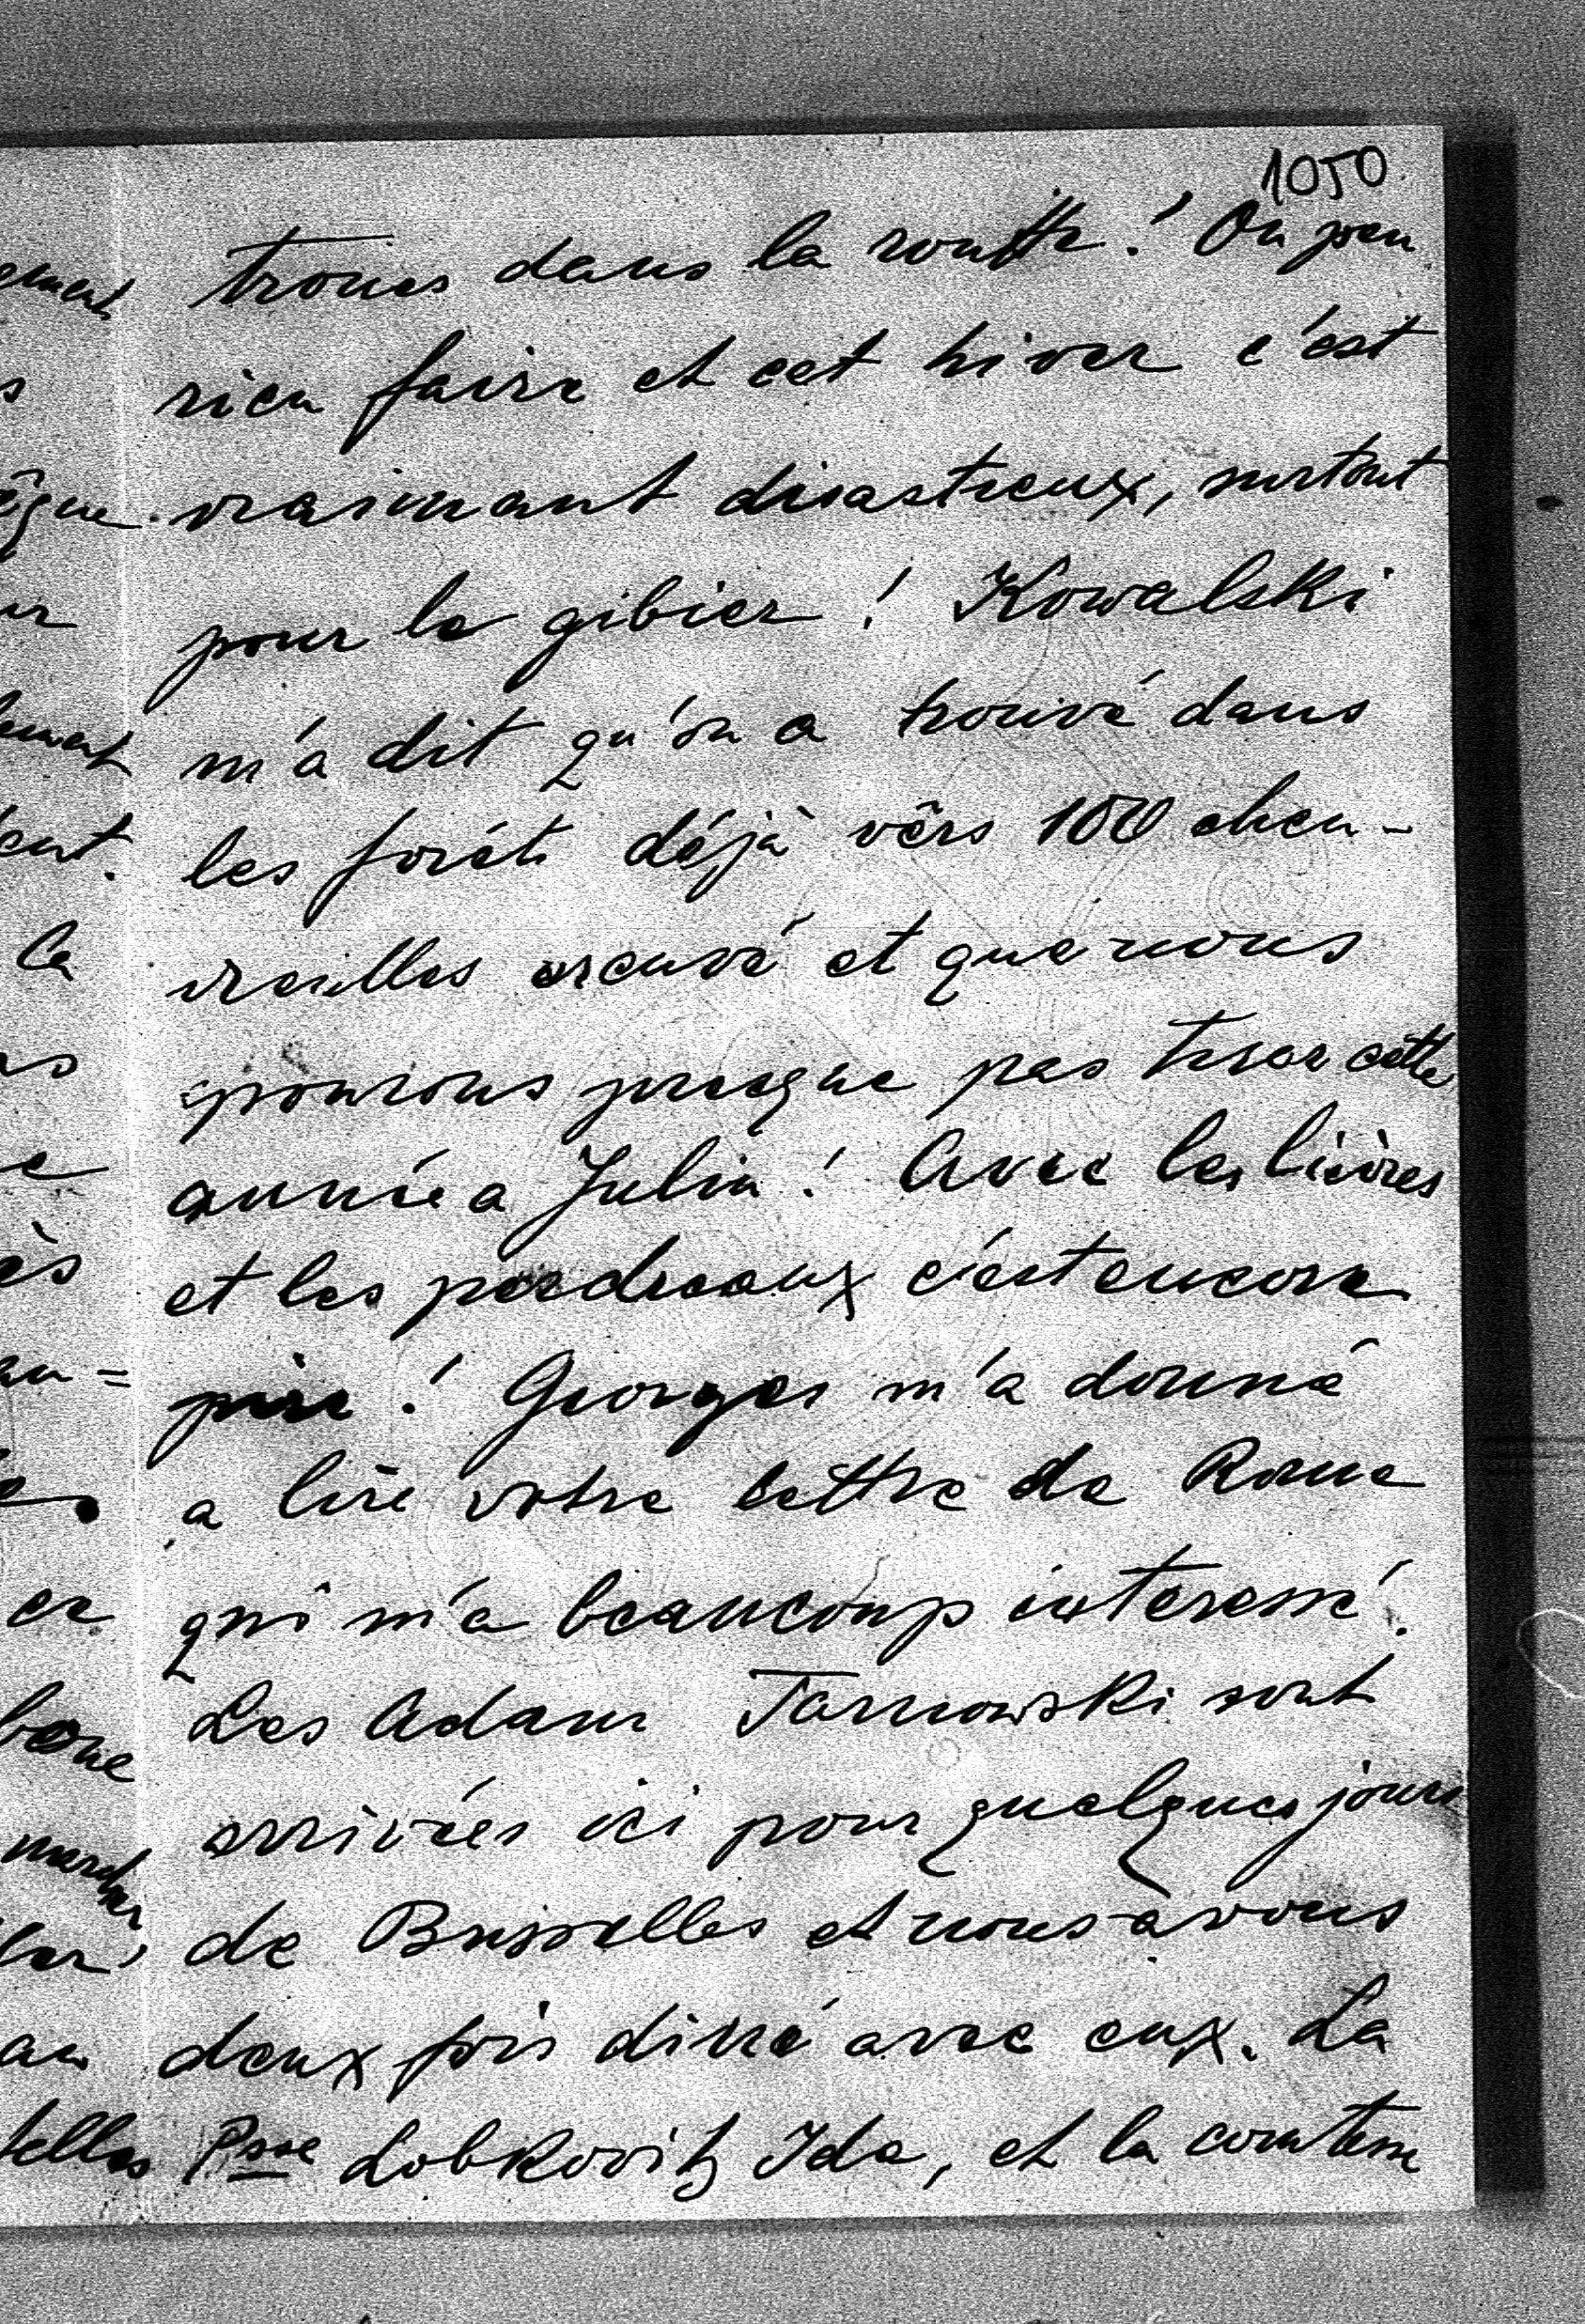 1050
troues dans la routte! On peu
rien faire et cet hiver c'est
vraimant disastreux, surtout
pour le gibier! Kowalski
m'a dit qu'on a trouvé dans
les foréts déjà vêrs 100 cheu-
vreuilles creuvé et que nous
pourons presque pas tirer cette
année a Julin! Avec les lièvres
et les perdreaux c'est encore
pire! Georges m'a donné
a lire votre lettre de Rome
qui m'a beaucoup interessé.
Les Adam Tarnowski sont
arrivées ici pour quelques jours
de Brüsselles et nous avons
deux fois diné avec eux. La
Psse Lobkovitz Ida, et la comtesse